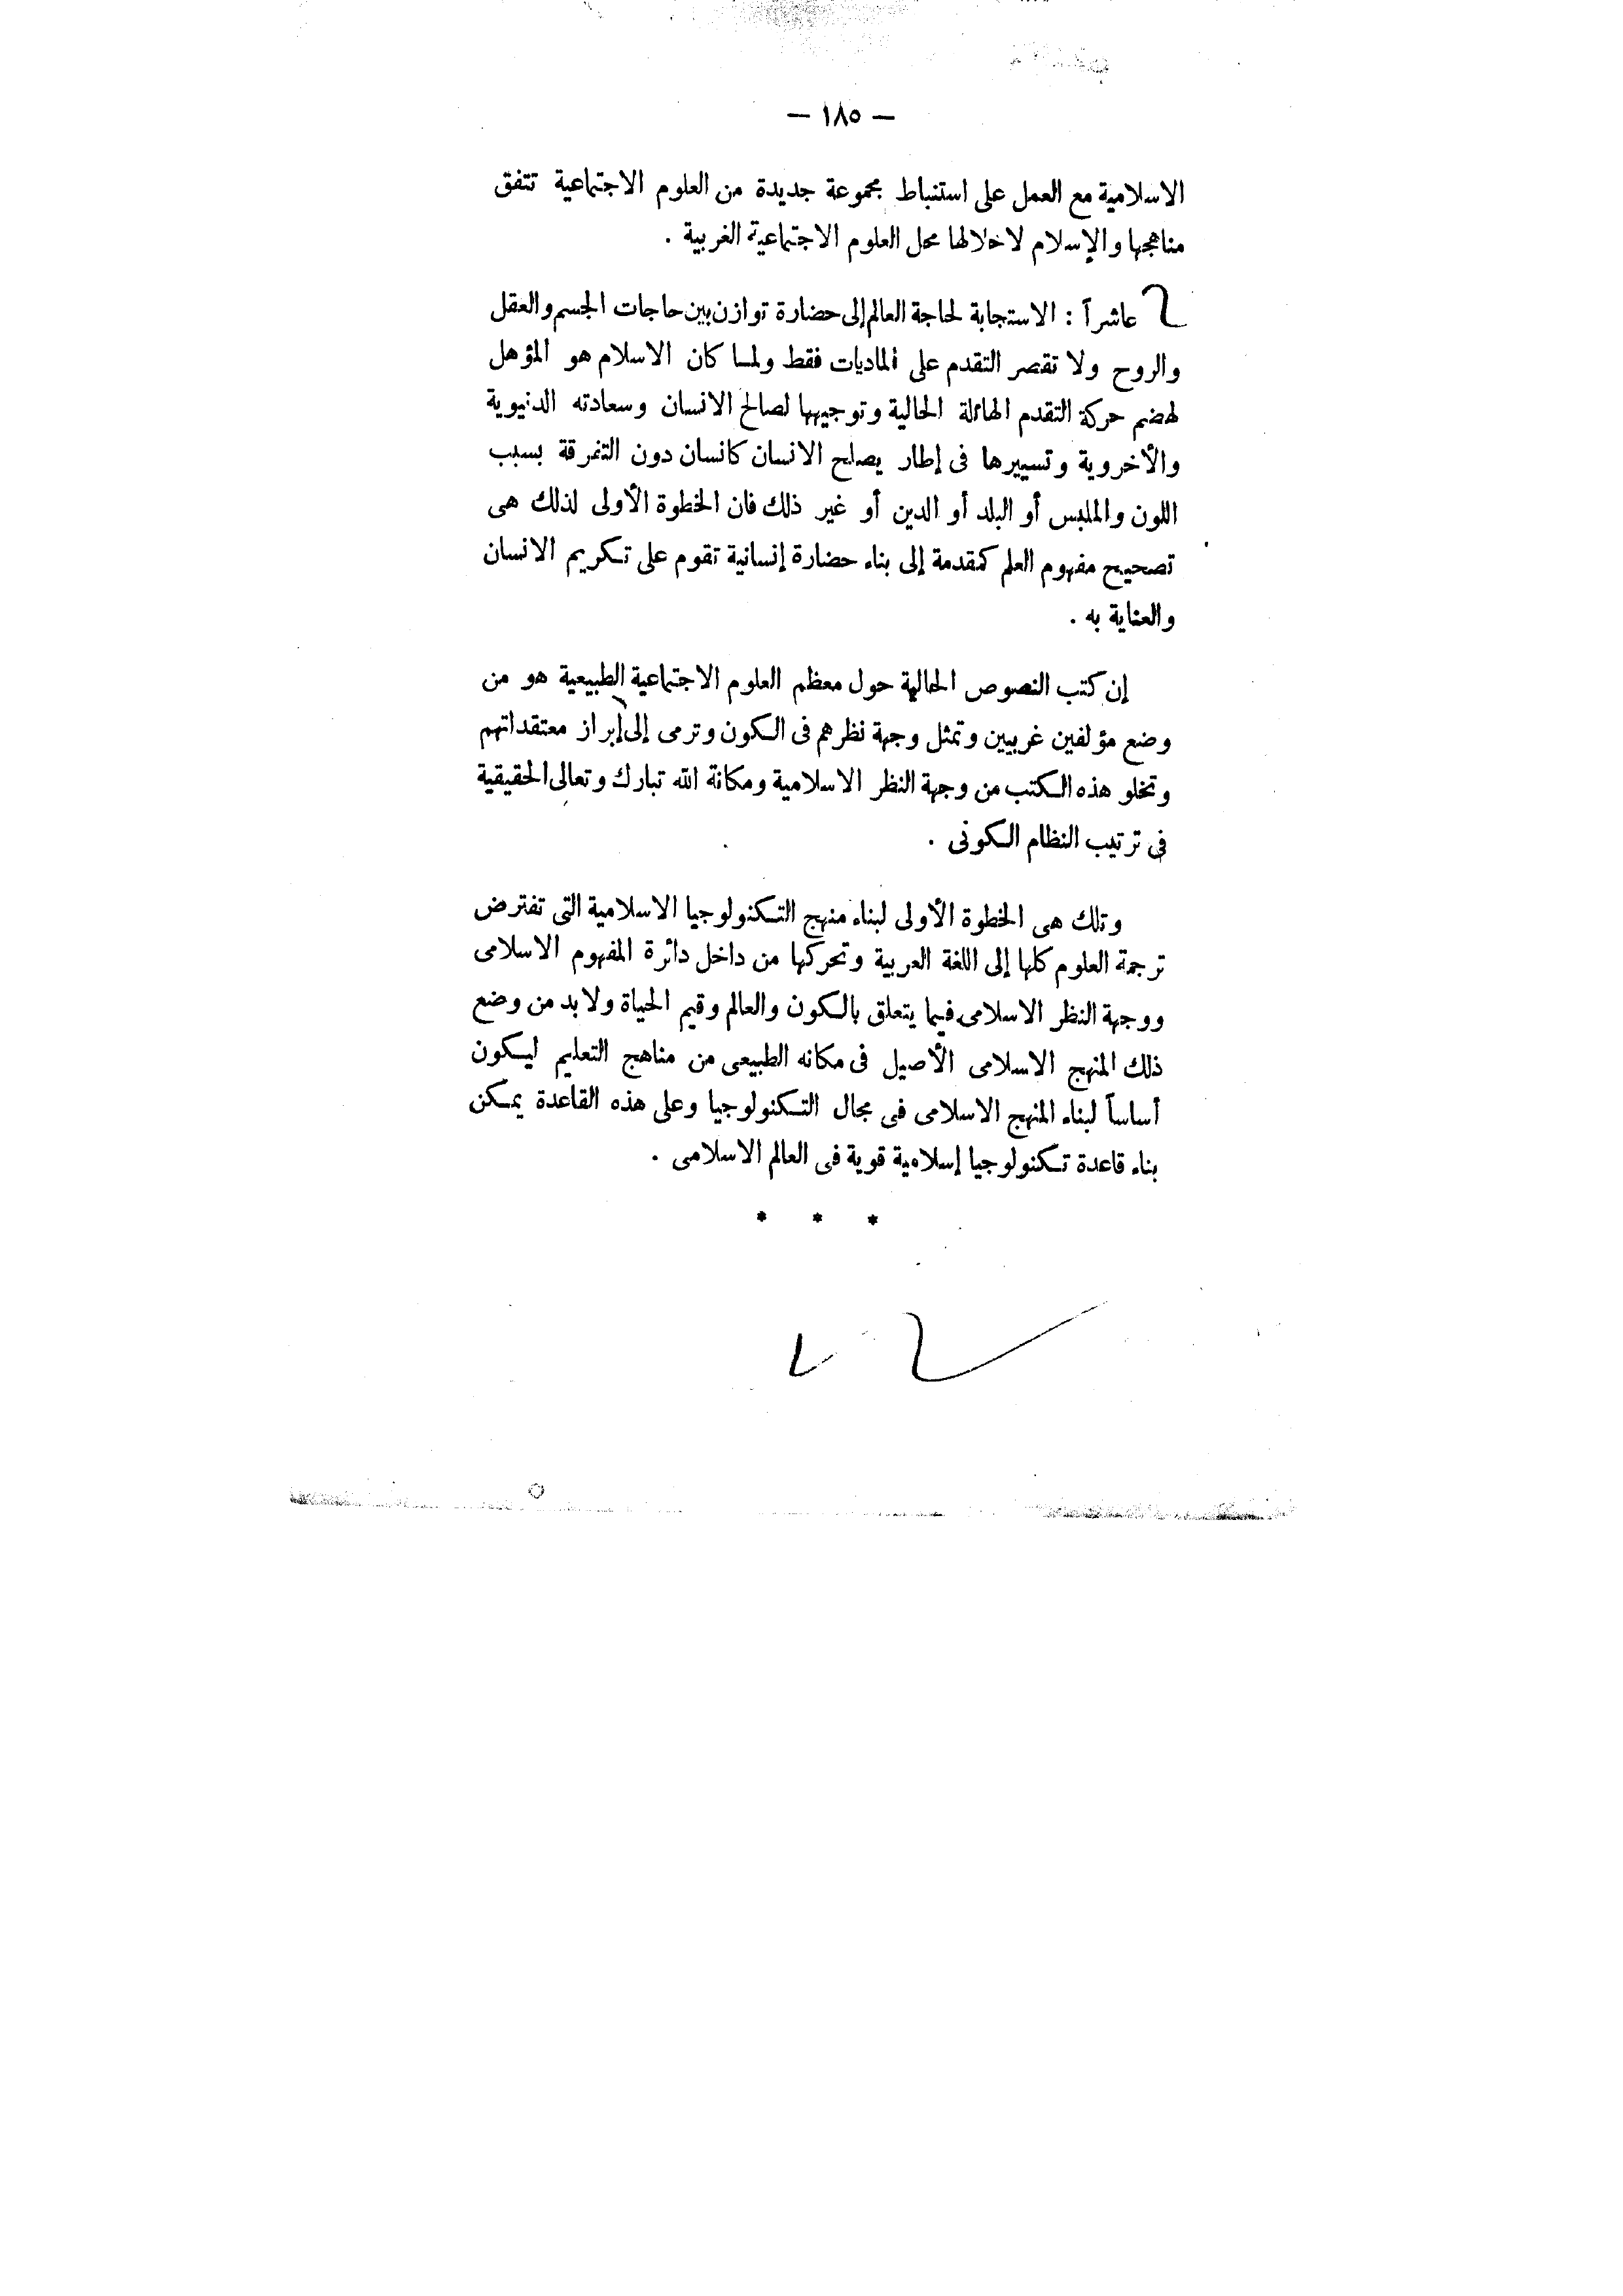 — ١٨٥ —
الاسلامية مع العمل على استنباط مجموعة جديدة من العلوم الاجتماعية تتفق
مناهجها والإسلام لاخلالها محل العلوم الاجتماعية الغربية .
عاشراً : الاستجابة لحاجة العالم إلى حضارة توازن بين حاجات الجسم والعقل
والروح ولا تقصر التقدم على الماديات فقط ولمسا كان الاسلام هو المؤهل
لهضم حركة التقدم الهائلة الحالية وتوجيهها لصالح الانسان وسعادته الدنيوية
والأخروية وتسييرها فى إطار يصلح الانسان كانسان دون التفرقة بسبب
اللون والملبس أو البلد أو الدين أو غير ذلك فان الخطوة الأولى لذلك هى
تصحيح مفهوم العلم كمقدمة إلى بناء حضارة إنسانية تقوم على تكريم الانسان
والعناية به .
إن كتب النصوص الحالية حول معظم العلوم الاجتماعية الطبيعية هو من
وضع مؤلفين غربيين وتمثل وجهة نظرهم فى الكون وترمى إلى إبراز معتقداتهم
وتخلو هذه الكتب من وجهة النظر الاسلامية ومكانة الله تبارك وتعالى الحقيقية
فى ترتيب النظام الكونى .
وتلك هى الخطوة الأولى لبناء منهج التكنولوجيا الاسلامية التى تفترض
ترجمة العلوم كلها إلى اللغة العربية وتحركها من داخل دائرة المفهوم الاسلامى
ووجهة النظر الاسلامى فيما يتعلق بالكون والعالم وقيم الحياة ولابد من وضع
ذلك المنهج الاسلامى الأصيل فى مكانه الطبيعى من مناهج التعليم ليكون
أساساً لبناء المنهج الاسلامى فى مجال التكنولوجيا وعلى هذه القاعدة يمكن
بناء قاعدة تكنولوجيا إسلامية قوية فى العالم الاسلامى .
* * *